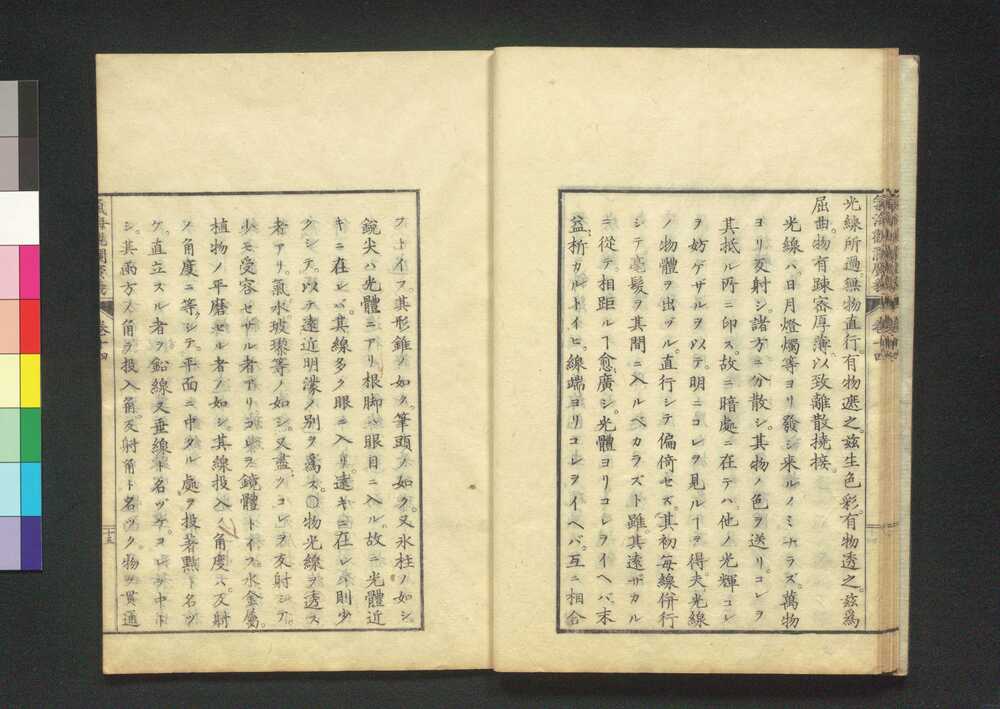 光線所過。無物直行。有物遮之。茲生色彩。有物透之。茲爲
屈曲。物有疎密厚薄。以致離散撓接。
光線ハ。日月燈燭等ヨリ發シ來ルノミナラズ。萬物
ヨリ反射シ。諸方ニ分散シ。其物ノ色ヲ送リ。コレヲ
其抵ル所ニ印ス。故ニ暗處ニ在テハ。他ノ光輝コレ
ヲ妨ゲザルヲ以テ。明ニコレヲ見ルヿヲ得。夫光線
ノ物體ヲ出ヅル。直行シテ偏倚セズ。其初每線併行
シテ毫髮ヲ其間ニ入ルベカラズト雖。其遠ザカル
ニ從テ。相距ルヿ愈廣シ。光體ヨリコレヲイヘバ。末
益折カルトイヒ。線端ヨリコレヲイヘバ。互ニ相合
フトイフ。其形錐ノ如ク。筆頭ノ如ク。又氷柱ノ如シ
鋭尖ハ光體ニアリ根脚ハ眼目ニ入ル。故ニ光體近
キニ在レバ。其線多ク眼ニ入リ。遠キニ在レバ則少
クシテ。以テ遠近明濛ノ別ヲ爲ス。〇物光線ヲ透ス
者アリ。氣水玻瓈等ノ如シ。又盡クコレヲ反射シテ。
少モ受容セザル者アリコレヲ鏡體トイフ。水金屬。
植物ノ平磨セル者ノ如シ其線投入ノ角度ハ。反射
ノ角度ニ等シテ。平面ニ中タル處ヲ投著點ト名ヅ
ケ。直立スル者ヲ鉛線又垂線ト名ヅケ。コレヲ中トシ
シ。其兩方ヲ角ヲ投入角。反射角ト名ヅク。物ヲ貫通
氣海觀瀾廣義
卷十四
十五